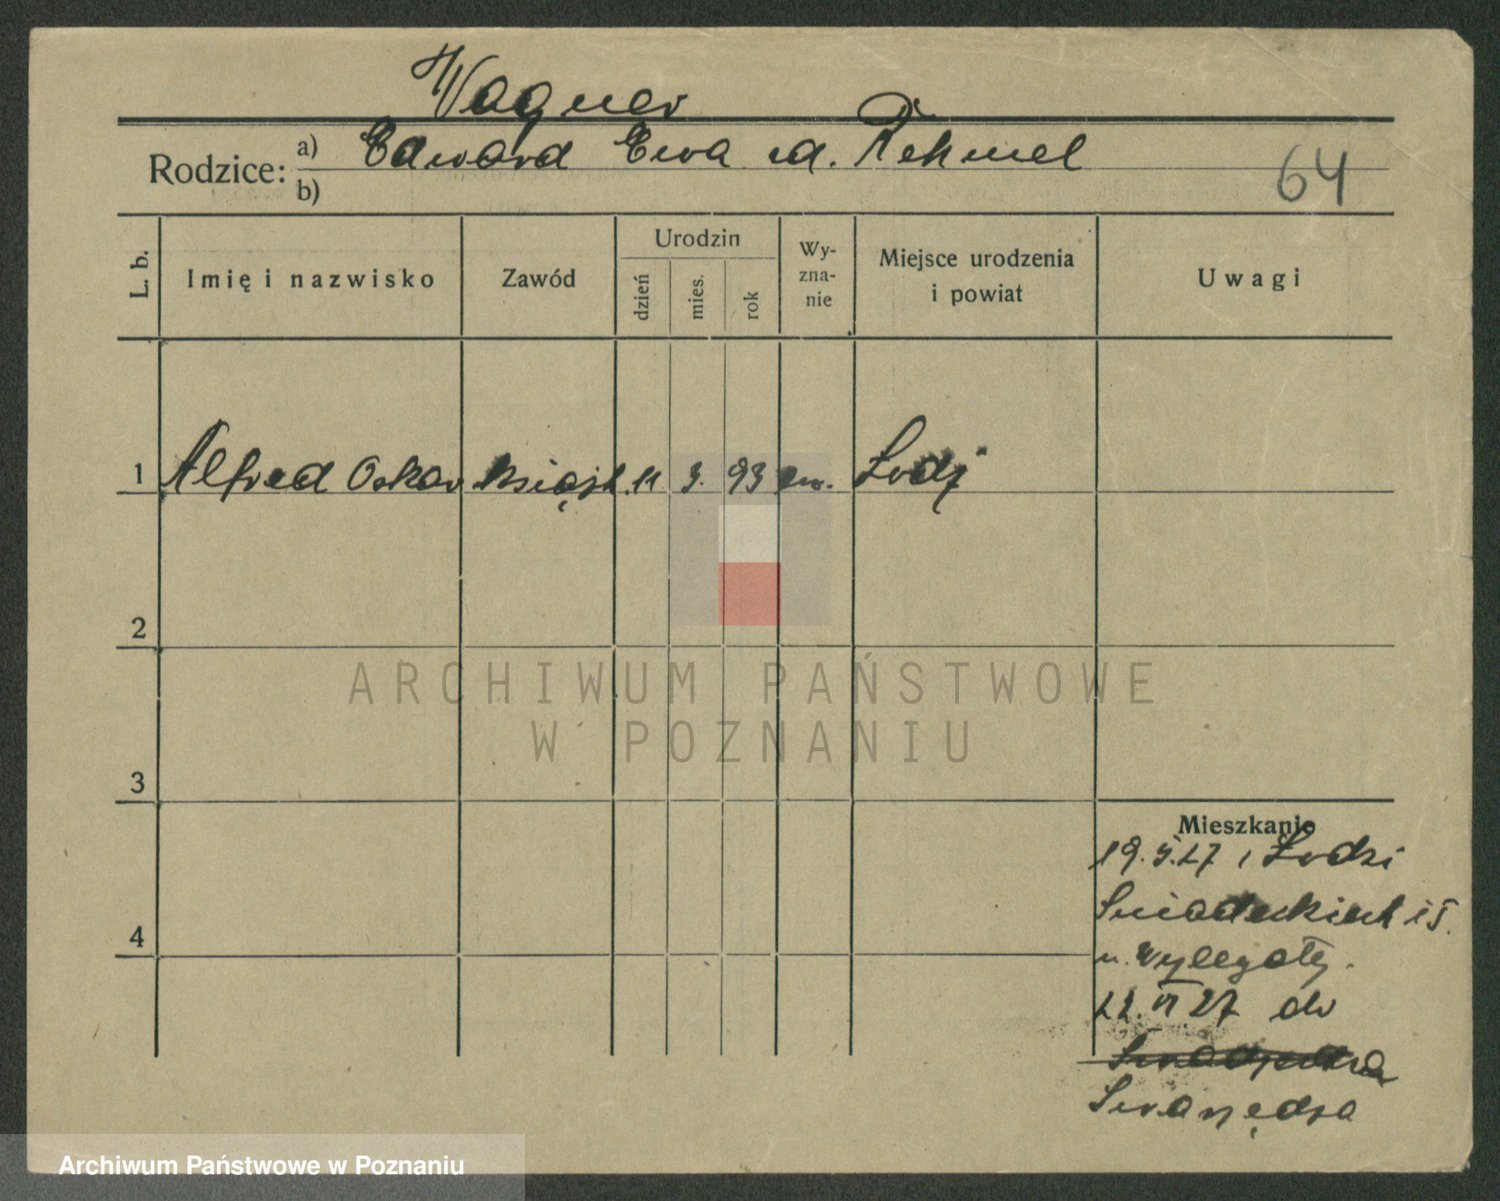 Wagner
Rodzice: a) Edward Ewa z d. Rehmel
b)
64
L. b.
Imię i nazwisko
Zawód
Urodzin
dzień
mies.
rok
Wy-
zna-
nie
Miejsce urodzenia
i powiat
Uwagi
1 Alfred Oskar 11 3. 93 ew. Łodź
2
3
4
ARCHIWUM PAŃSTWOWE
W POZNANIU
Mieszkanie
19.5.27 z Łodzi
Śniadeckich 15.
u. Wylegały.
22.VI 27 do
Swarzędza
Archiwum Państwowe w Poznaniu